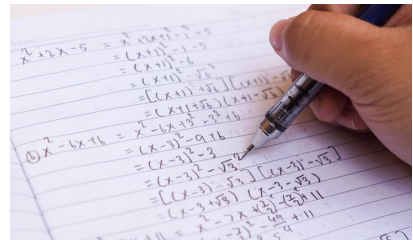 x² + 2x - 5 = x² + 2x + 1² - 1² - 5
= (x+1)² - 1 - 5
= (x+1)² - 6
= (x+1)² - √6²
= [(x+1) + √6] [(x+1) - √6
= (x+1+√6)(x+1-√6)
(b) x² - 6x + 6 = x² - 6x + 3² - 3² + 6
= (x-3)² - 9 + 6
= (x-3)² - 3
= (x-3)² - √3²
= [(x-3) + √3] [(x-3) - √3]
= (x-3+√3) (x-3-√3)
+ 11 = x² - 7x + (7/2)² - (7/2)² + 11
)² - 49/4 + 11